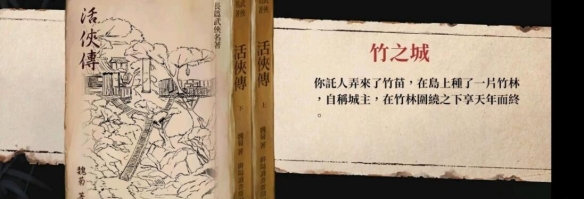 活俠傳
長篇武俠名著
魏菊 著
活俠傳
下
魏菊 著
活俠傳
上
魏菊 著
竹之城
你託人弄來了竹苗，在島上種了一片竹林
，自稱城主，在竹林圍繞之下享天年而終
。